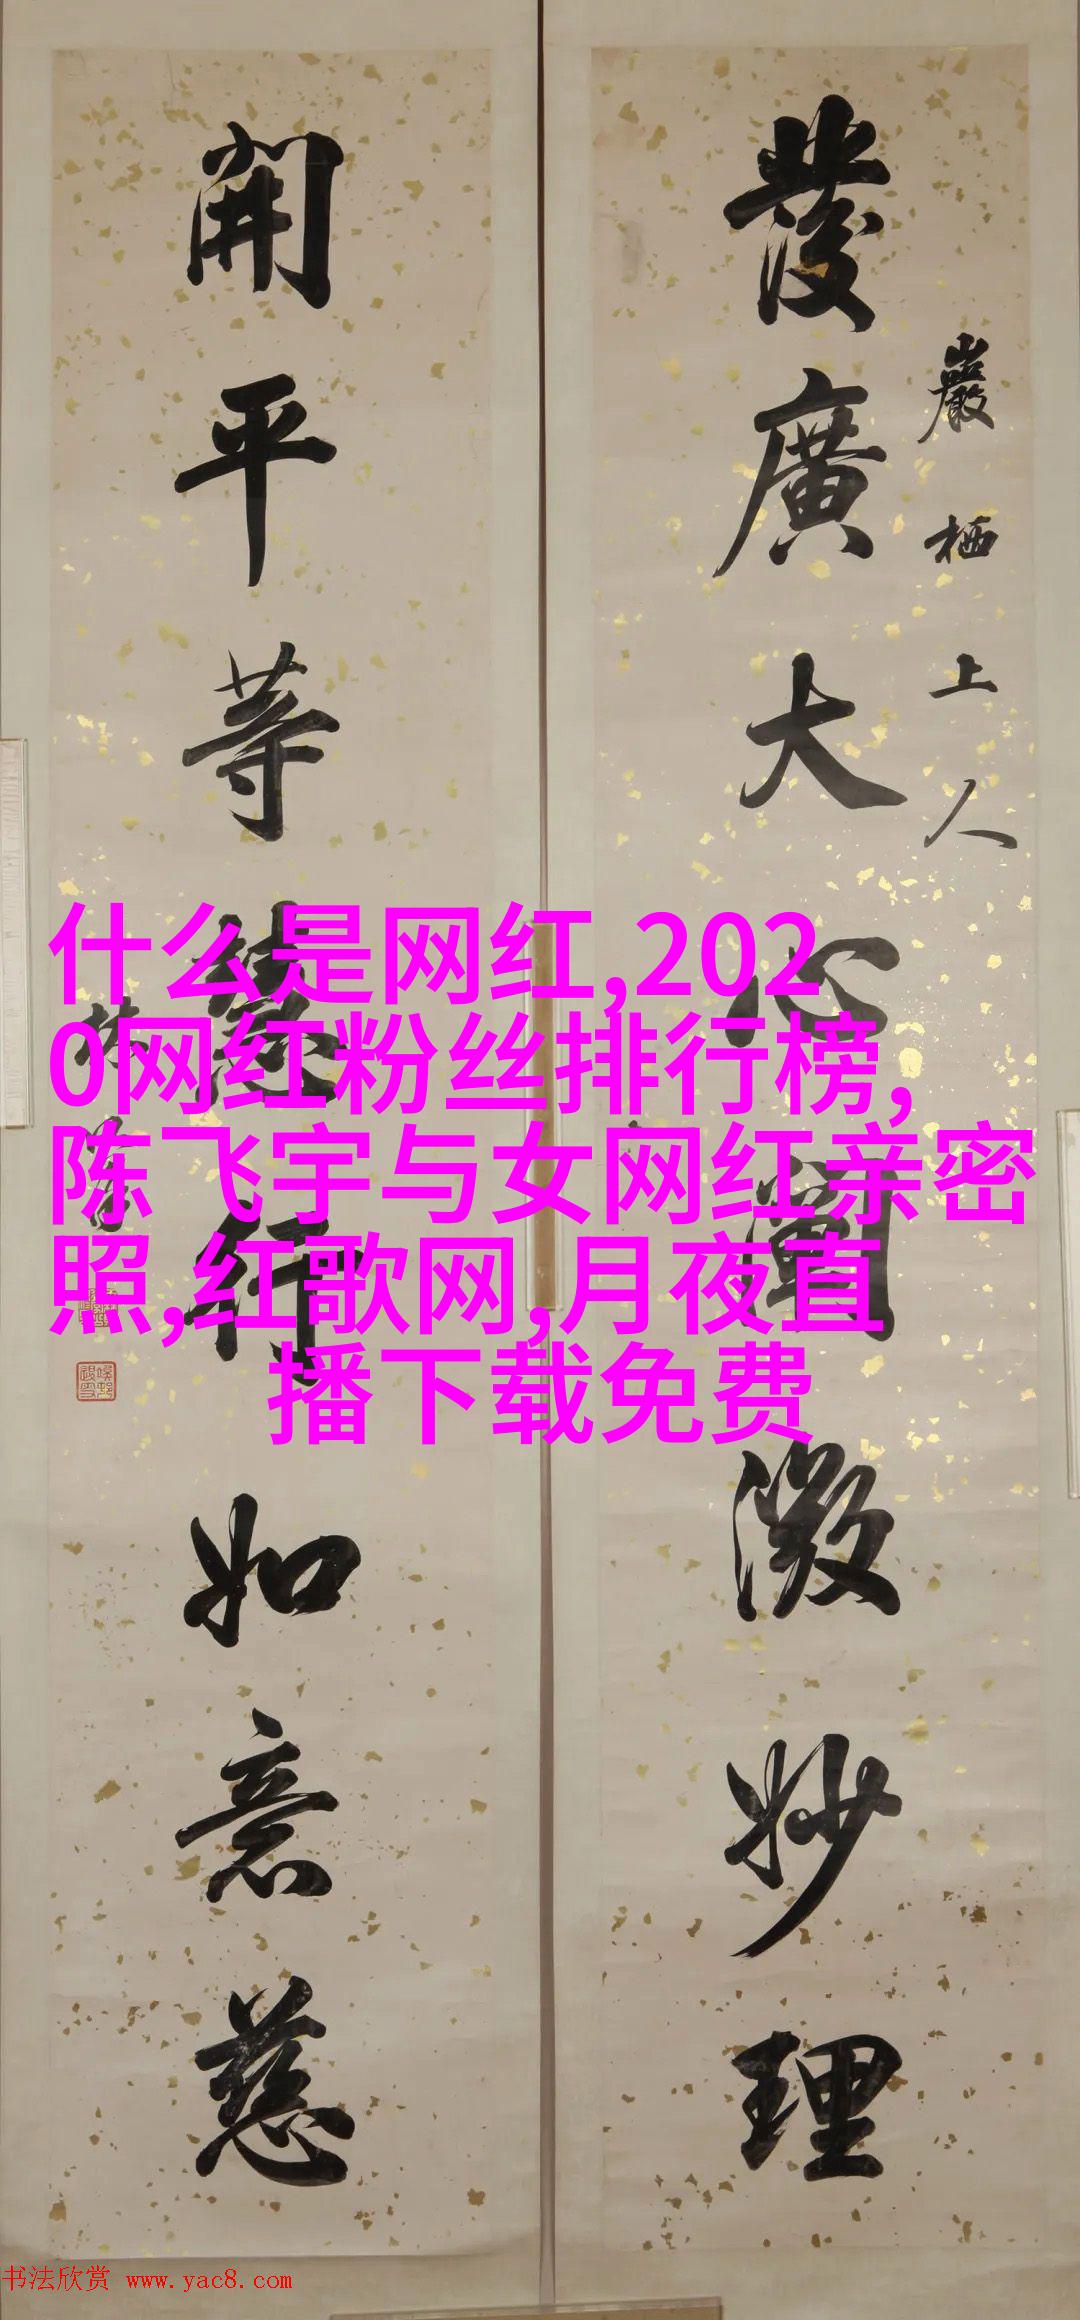 發廣大心闡微妙理
巖栖上人
開平等慧行如意慈
什么是网红,202
0网红粉丝排行榜,
陈飞宇与女网红亲密
照,红歌网,月夜直
播下载免费
书法欣赏 www.yac8.com